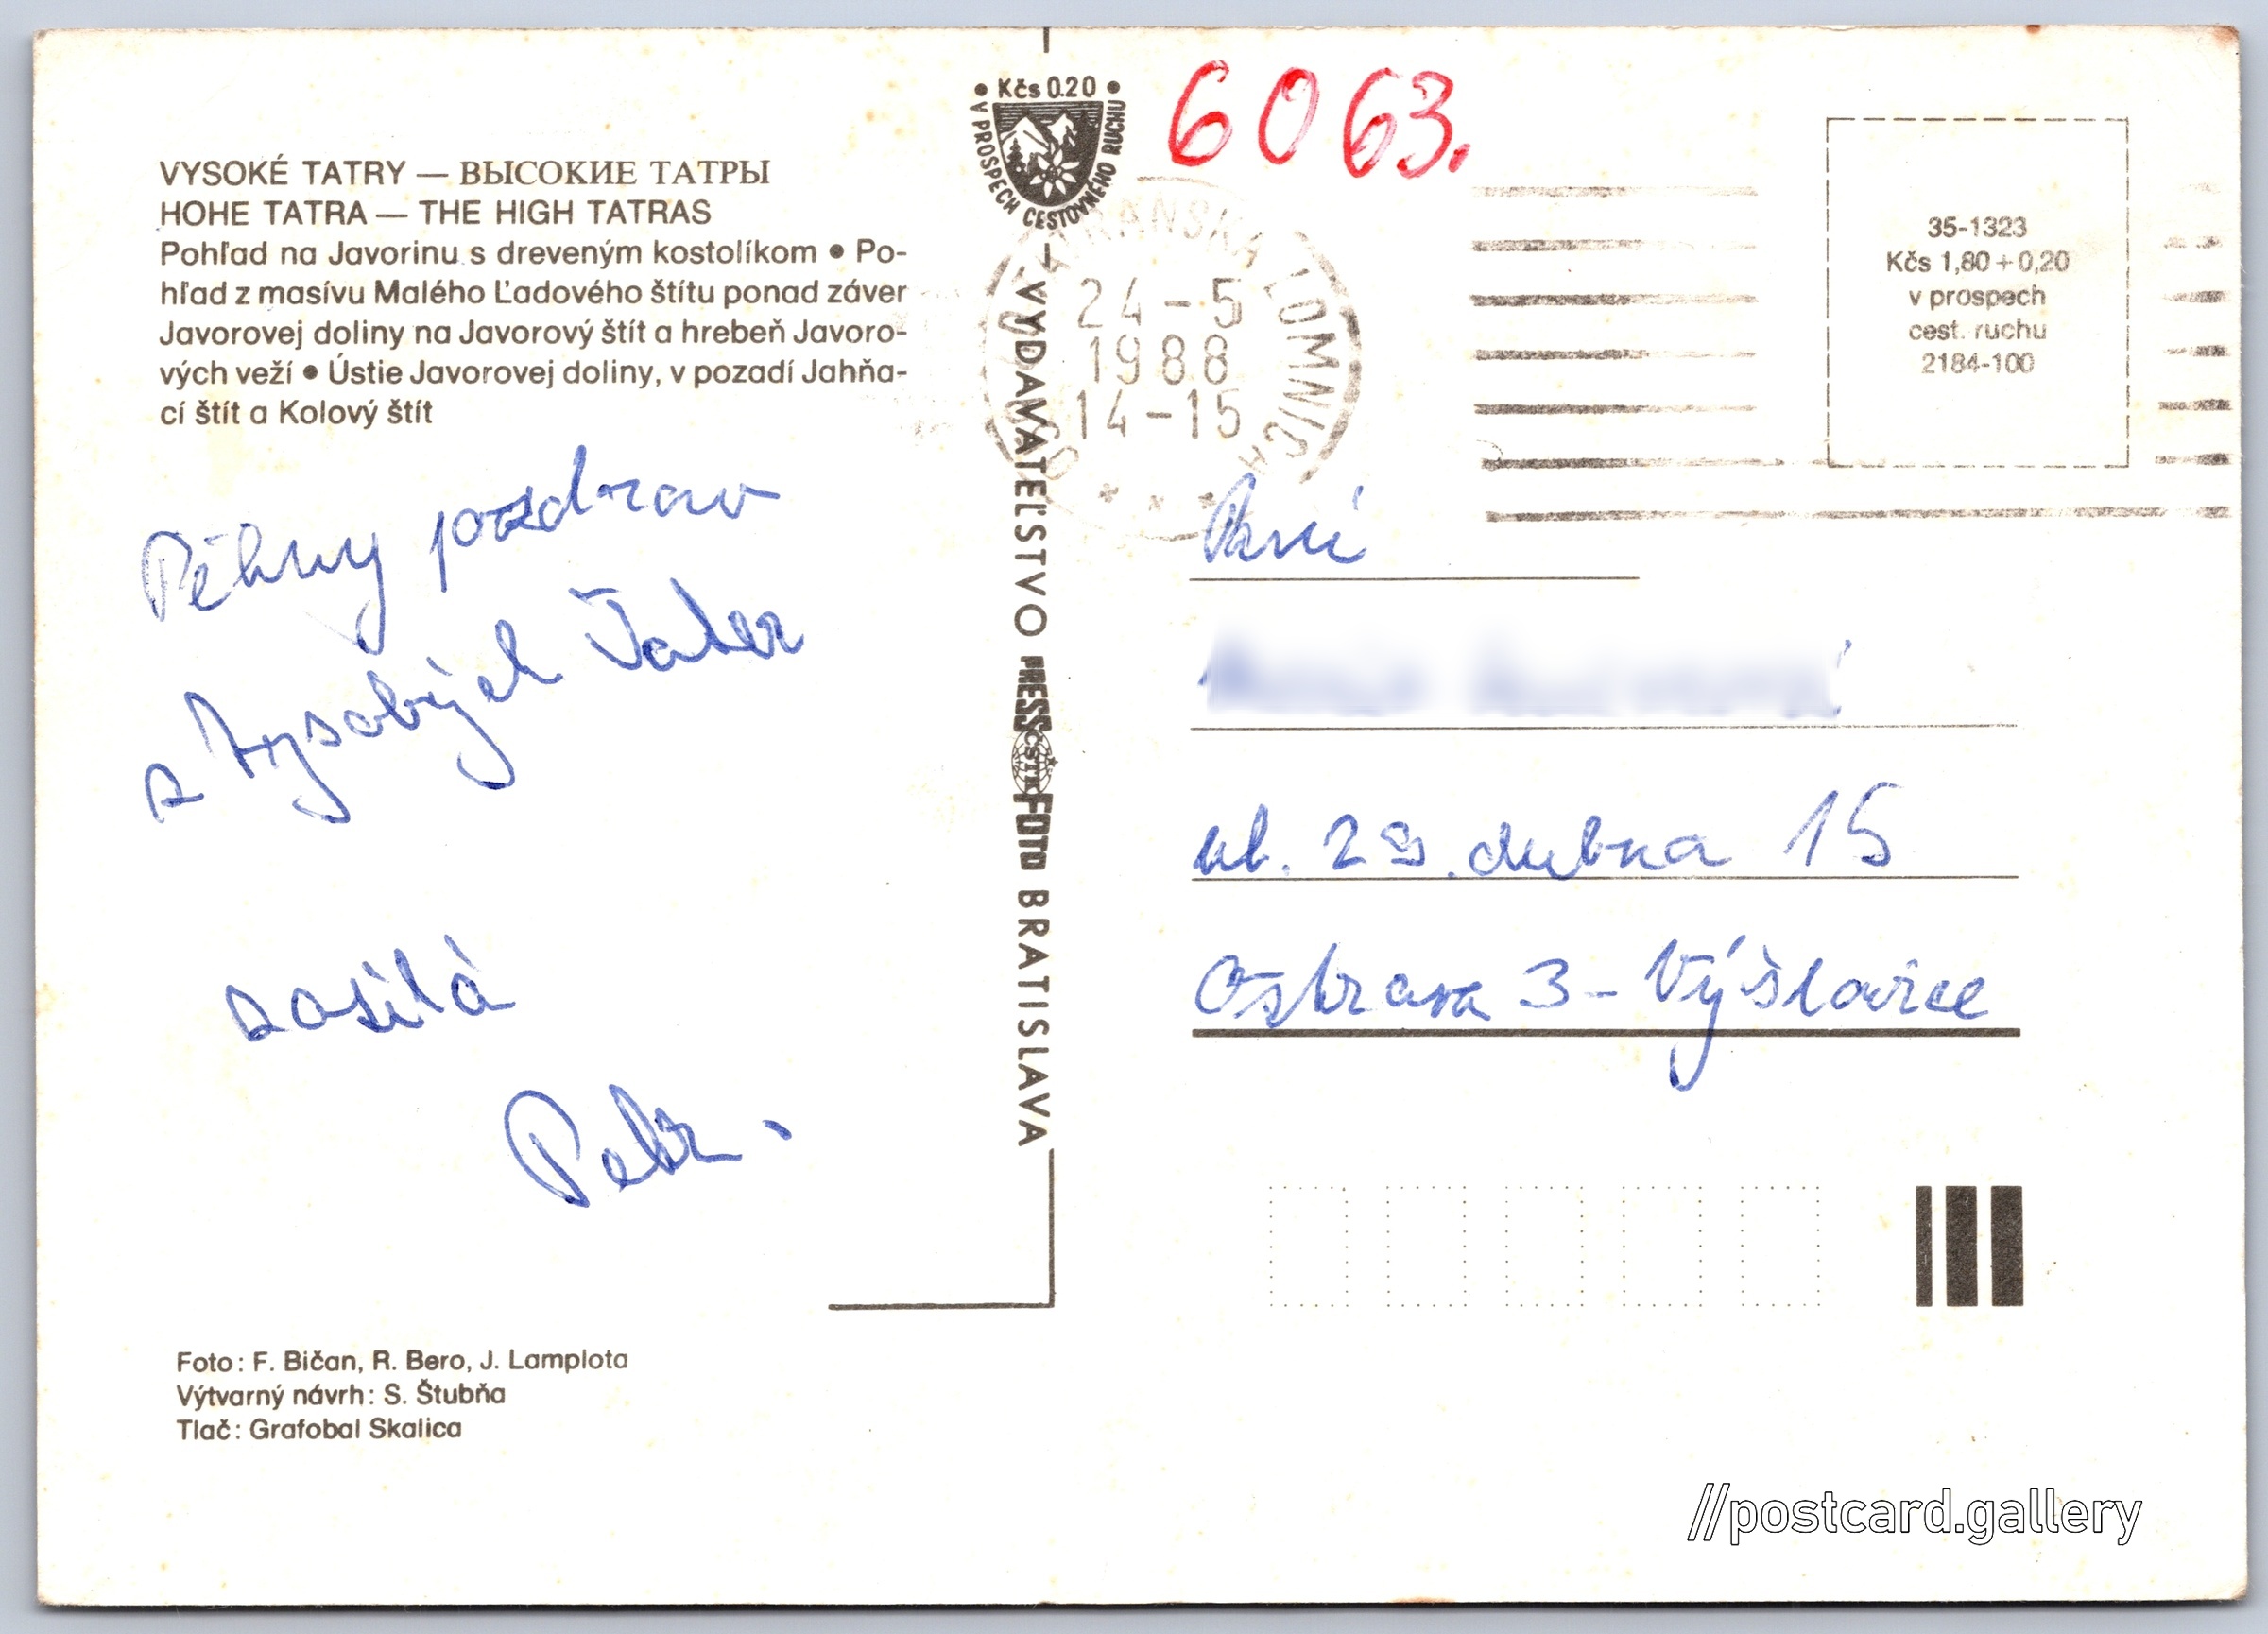 VYSOKÉ TATRY — ВЫСОКИЕ ТАТРЫ
HOHE TATRA — THE HIGH TATRAS
Pohľad na Javorinu s dreveným kostolíkom • Po-
hľad z masívu Malého Ľadového štítu ponad záver
Javorovej doliny na Javorový štít a hrebeň Javoro-
vých veží • Ústie Javorovej doliny, v pozadí Jahňa-
cí štít a Kolový štít
Pěkný pozdrav
z Vysokých Tater
zasílá
Petr.
Foto: F. Bičan, R. Bero, J. Lamplota
Výtvarný návrh: S. Štubňa
Tlač: Grafobal Skalica
• Kčs 0.20 •
V PROSPECH CESTOVNÉHO RUCHU
VYDAVATEĽSTVO PRESSFOTO BRATISLAVA
ČSTK
6063.
TATRANSKÁ LOMNICA
24-5
1988
14-15
35-1323
Kčs 1,80 + 0,20
v prospech
cest. ruchu
2184-100
Paní
ul. 29. dubna 15
Ostrava 3 - Výškovice
//postcard.gallery